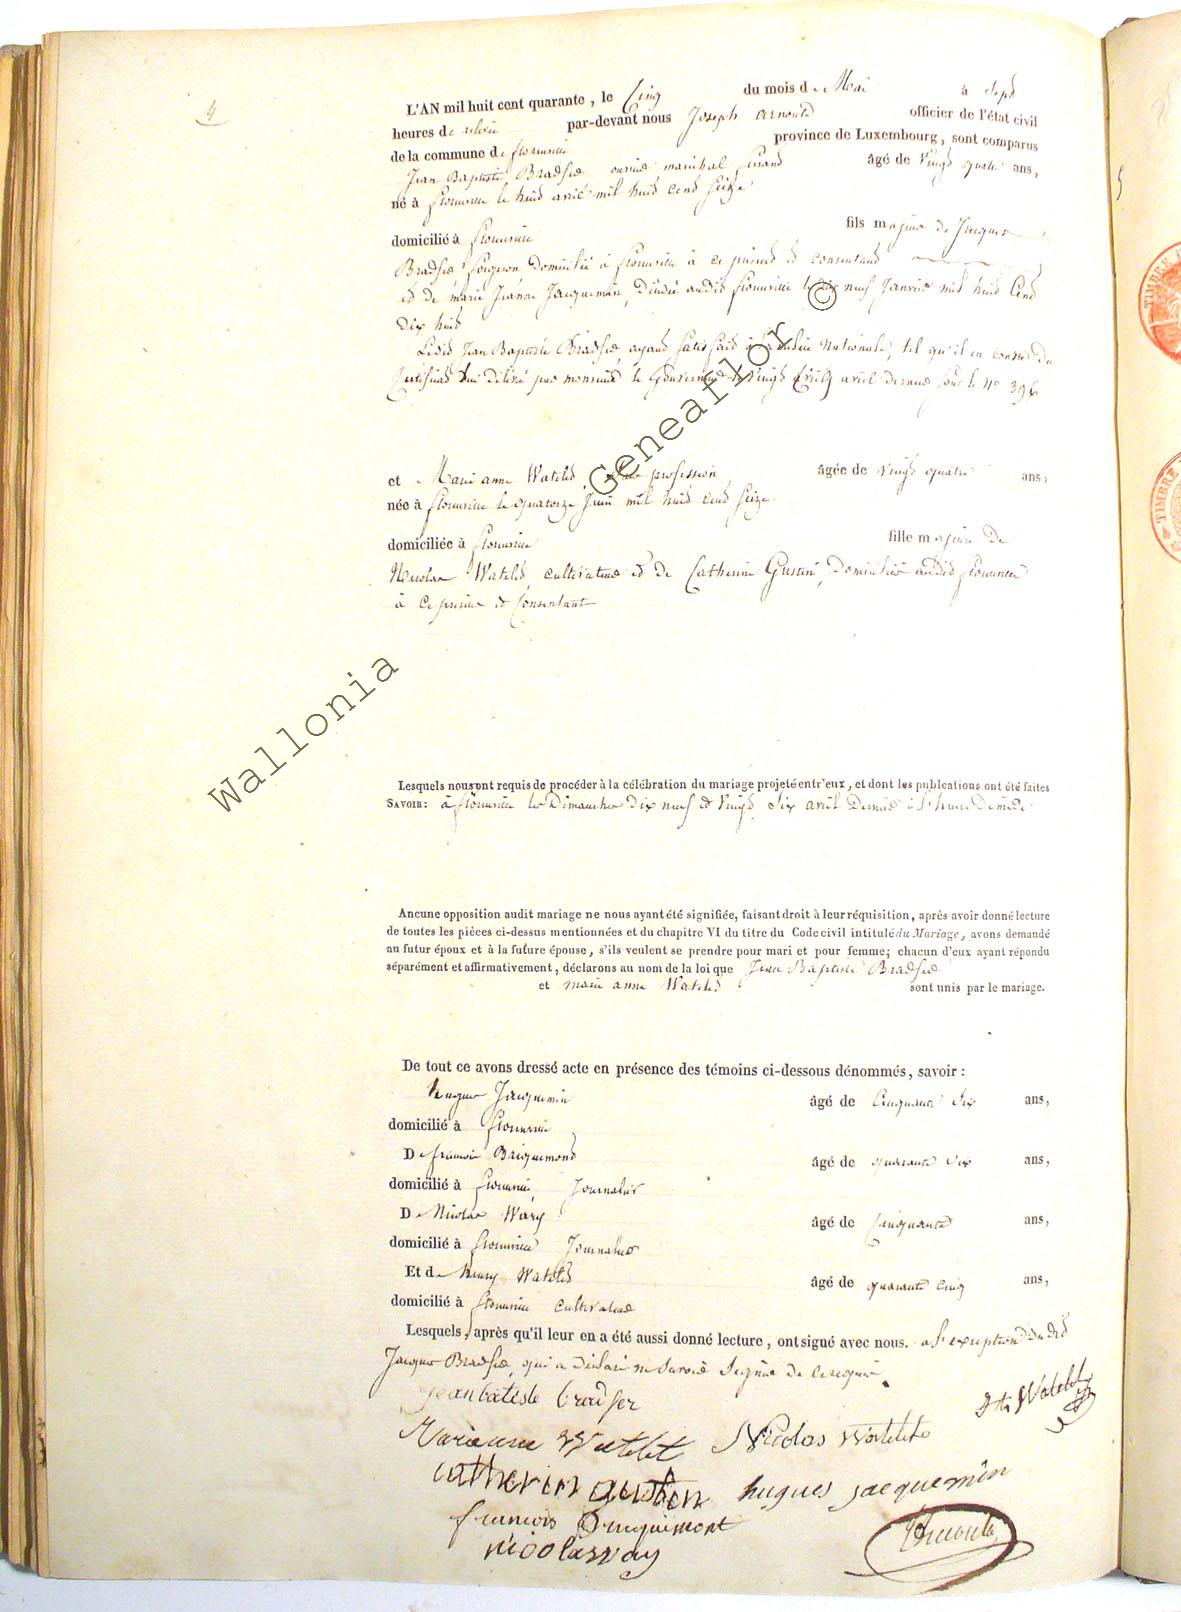 4
L'AN mil huit cent quarante, le Cinq du mois de Mai à Sept
heures de relevée par-devant nous Joseph Arnould officier de l'état civil
de la commune de florenville province de Luxembourg, sont comparus
Jean Baptiste Bradfer ouvrier maréchal ferrand âgé de vingt quatre ans,
né à florenville le huit avril mil huit cent seize
domicilié à florenville fils majeur de Jacques
Bradfer forgeron domicilié à florenville à ce présent et consentant
et de marie Jeanne Jacquemin, décédée audit florenville le dix neuf Janvier mil huit cent
dix huit
Ledit Jean Baptiste Bradfer, ayant satisfait à la milice Nationale, tel qu'il en conste du
Certificat lui délivré par monsieur le Gouverneur le vingt avril dernier sous le No
et Marie anne Watelet, sans profession, âgée de vingt quatre ans,
née à florenville le quatorze Juin mil huit cent seize
domiciliée à florenville fille majeure de
Nicolas Watelet, cultivateur et de Catherine Gustin, domiciliés audit florenville
à ce présent et Consentant
Lesquels nous ont requis de procéder à la célébration du mariage projeté entr'eux, et dont les publications ont été faites
SAVOIR: à florenville les Dimanches dix neuf et vingt six avril dernier à l'heure de midi
Ancune opposition audit mariage ne nous ayant été signifiée, faisant droit à leur réquisition, après avoir donné lecture
de toutes les pièces ci-dessus mentionnées et du chapitre VI du titre du Code civil intitulé du Mariage, avons demandé
au futur époux et à la future épouse, s'ils veulent se prendre pour mari et pour femme; chacun d'eux ayant répondu
séparément et affirmativement, déclarons au nom de la loi que Jean Baptiste Bradfer
et marie anne Watelet sont unis par le mariage.
De tout ce avons dressé acte en présence des témoins ci-dessous dénommés, savoir:
hugues Jacquemin âgé de Cinquante Six ans,
domicilié à florenville
De françois Bricquemont âgé de quarante six ans,
domicilié à florenville, Journalier
De Nicolas Wary âgé de Cinquante ans,
domicilié à florenville Journalier
Et de henry Watelet âgé de quarante cinq ans,
domicilié à florenville cultivateur
Lesquels, après qu'il leur en a été aussi donné lecture, ont signé avec nous. a l'exception dudit
Jacques Bradfer, qui a déclaré ne savoir signer de ce requis.
jeanbatiste bradfer
Watelet
Marieanne Watelet Nicolas Watelet
catherin gustin hugues jacquemin
francois Bricquemont
nicolas way
Arnould
Wallonia Geneaflor ©
5
TIMBRE
TIMBRE